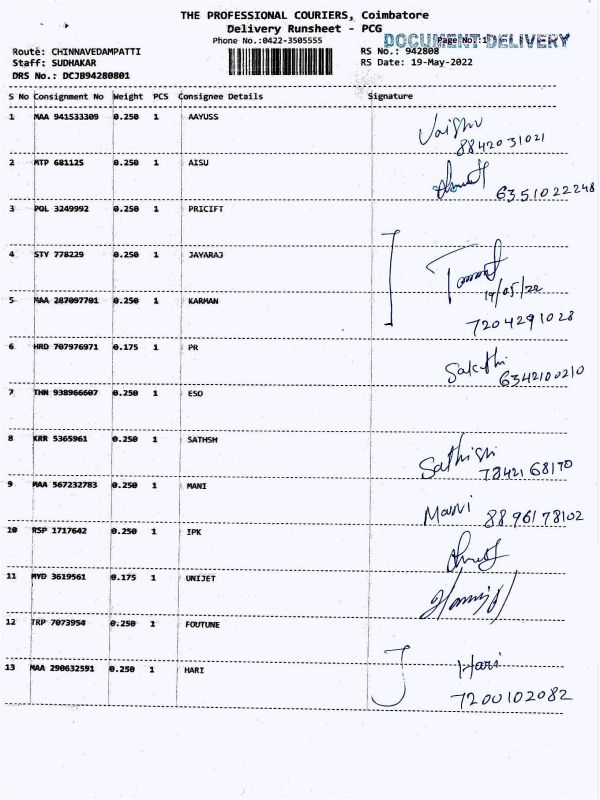 THE PROFESSIONAL COURIERS, Coimbatore
Delivery Runsheet - PCG
DOCUMENT DELIVERY
Phone No.:0422-3505555 Page No.:1
Route: CHINNAVEDAMPATTI RS No.: 942808
Staff: SUDHAKAR RS Date: 19-May-2022
DRS No.: DCJB94280801
S No Consignment No Weight PCS Consignee Details Signature
1 MAA 941533309 0.250 1 AAYUSS
Vaishu
8842031021
2 MTP 681125 0.250 1 AISU
6351022248
3 POL 3249992 0.250 1 PRICIFT
4 STY 778229 0.250 1 JAYARAJ
19/05/22
5 MAA 287097701 0.250 1 KARMAN
7204291028
6 HRD 707976971 0.175 1 PR
Sakthi
6342100210
7 THN 938966607 0.250 1 ESO
8 KRR 5365961 0.250 1 SATHSH
Sathish
7842168170
9 MAA 567232783 0.250 1 MANI
Mani 8896178102
10 RSP 1717642 0.250 1 IPK
11 MYD 3619561 0.175 1 UNIJET
12 TRP 7073954 0.250 1 FOUTUNE
13 MAA 290632591 0.250 1 HARI
Hari
7200102082